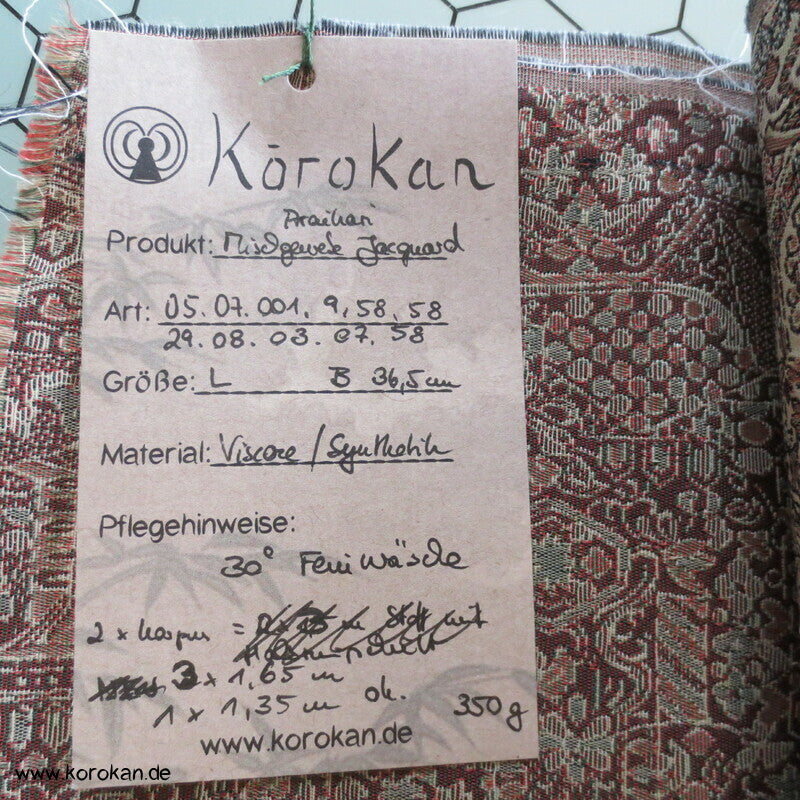 Kōrokan
Produkt: Mischgewebe Jacquard
Art: 05.07.001. 9,58,58
29.08.03.07.58
Größe: L B 36,5 cm
Material: Viscose / Synthetik
Pflegehinweise:
30° Feinwäsche
2 x =
3 x 1,65 m
1 x 1,35 m ok. 350 g
www.korokan.de
www.korokan.de